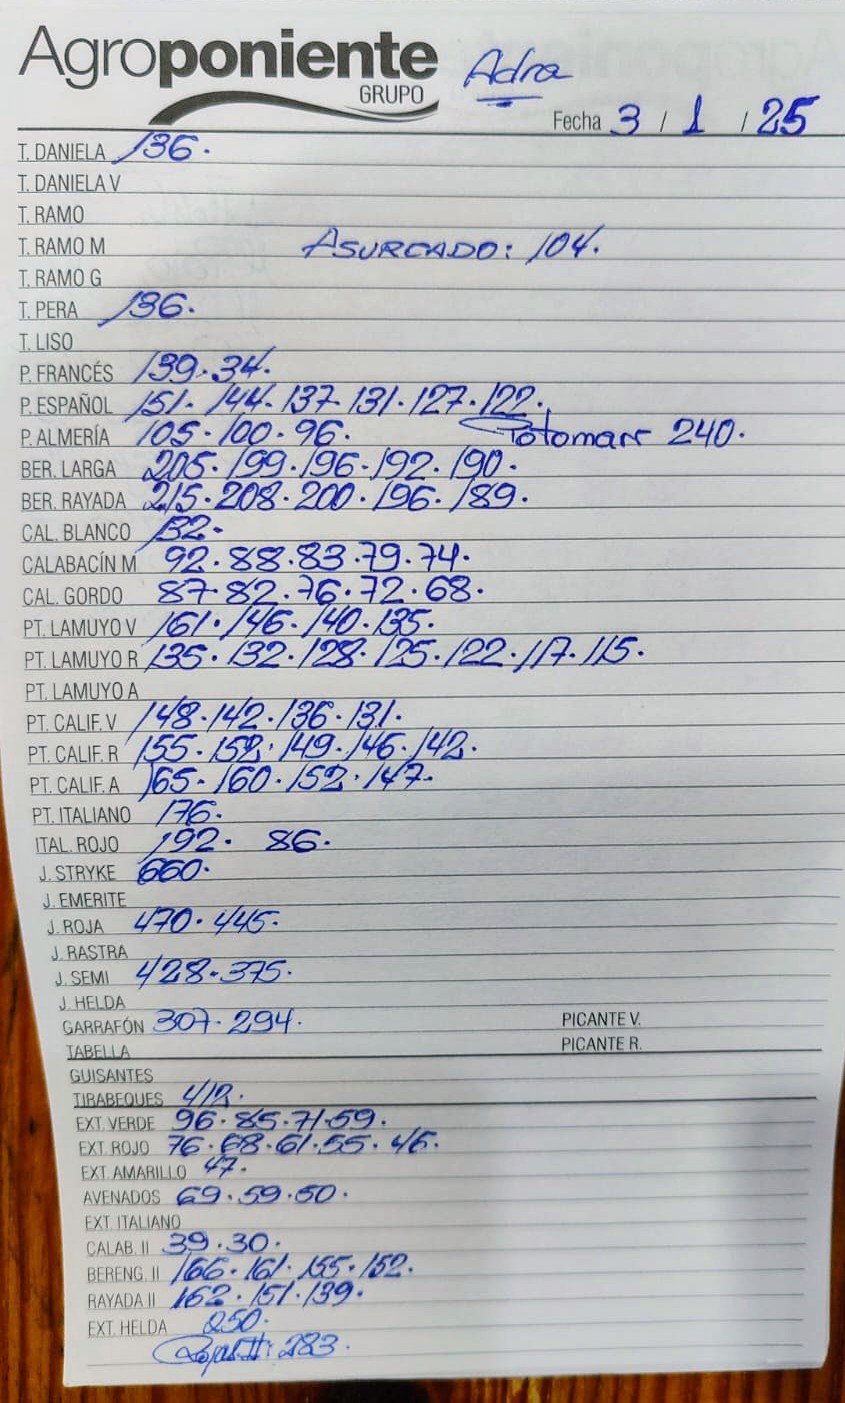 Agroponiente Adra
GRUPO
Fecha 3 / 1 / 25
T. DANIELA 136.
T. DANELA V
T. RAMO
T. RAMO M ASURCADO: 104.
T. RAMO G
T. PERA 136.
T. LISO
P. FRANCÉS 139. 34.
P. ESPAÑOL 151. 144. 137. 131. 127. 122.
P. ALMERÍA 105. 100. 96. Totomarr 240.
BER. LARGA 205. 199. 196. 192. 190.
BER. RAYADA 215. 208. 200. 196. 189.
CAL. BLANCO 132.
CALABACÍN M 92. 88. 83. 79. 74.
CAL. GORDO 87. 82. 76. 72. 68.
PT. LAMUYO V 161. 146. 140. 135.
PT. LAMUYO R 135. 132. 128. 125. 122. 117. 115.
PT. LAMUYO A
PT. CALIF. V 148. 142. 136. 131.
PT. CALIF. R 155. 152. 149. 146. 142.
PT. CALIF. A 165. 160. 152. 147.
PT. ITALIANO 176.
ITAL. ROJO 192. 86.
J. STRYKE 660.
J. EMERITE
J. ROJA 470. 445.
J. RASTRA
J. SEMI 428. 375.
J. HELDA
GARRAFÓN 307. 294. PICANTE V.
TABELLA PICANTE R.
GUISANTES
TIRABEQUES 412.
EXT. VERDE 96. 85. 71. 59.
EXT. ROJO 76. 68. 61. 55. 46.
EXT. AMARILLO 47.
AVENADOS 69. 59. 50.
EXT. ITALIANO
CALAB. II 39. 30.
BERENG. II 166. 161. 155. 152.
RAYADA II 162. 151. 139.
EXT. HELDA 250.
II: 283.